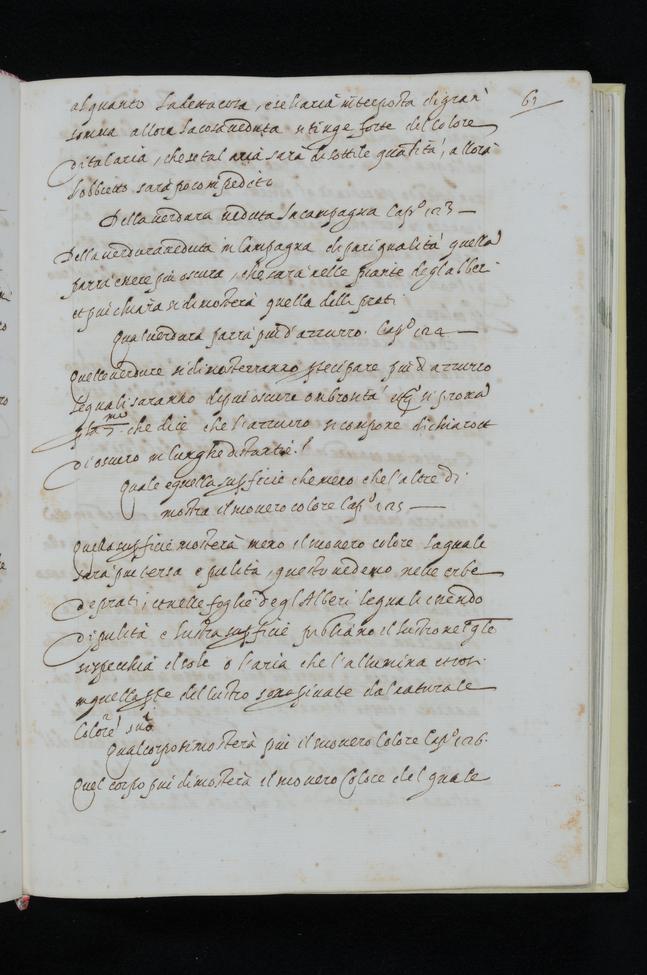 61
alquanto la detta cosa, e se l'aria interposta di gran
somma allora la cosa veduta si tinge forte del colore
di tal aria, che se tal aria sarà di sottile quantità, allora
l'obbietto sarà poco impedito
Della verdura veduta la campagna Cap.º 123 —
Della verdura veduta in Campagna di pari qualità quella
parrà essere più oscura, che sarà nelle piante degl'alberi
et più chiara si dimosterà quella delli prati
Qual verdura parrà più d'azzurro. Cap.º 124 —
Quelle verdure si dimosterranno participare più d'azzurro
le quali saranno di più oscure ombrosità et si prova
p la 7.ma che dice che l'azzurro si compone di chiaro et
di oscuro in lunghe distantie.
Quale e quella superficie che meno che l'altre di
mostra il suo vero colore Cap.º 125 —
Quella superficie mosterà meno il suo vero colore la quale
sarà più tersa e pulita, questo vedemo nelle erbe
de prati, et nelle foglie degl'Alberi le quali essendo
di pulita e lustra superficie pigliano il lustro nel qle
si specchia il sole o l'aria che l'allumina et così
in quella pte del lustro sono private dal naturale
Colore suo
Qual corpo ti mosterà più il suo vero Colore Cap.º 126.
Quel corpo più dimosterà il suo vero Colore del quale